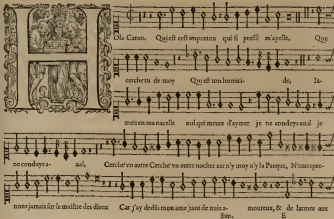 H
Ola Caron, Qui est cest importun qui si pressé m'apelle, Que
cerche tu de moy Qu'est ton homici- de, Ia-
mais en ma nacelle nul qui meure d'aymer je ne conduys aual je
ne conduys a- ual, Cerche vn autre Cerche vn autre nocher car n'y moy n'y la Parque, N'entrepre-
nons jamais sur le maistre des dieux Car j'ay dedãs mon ame tant de traits a- moureux, & de larmes aux
Sup. E